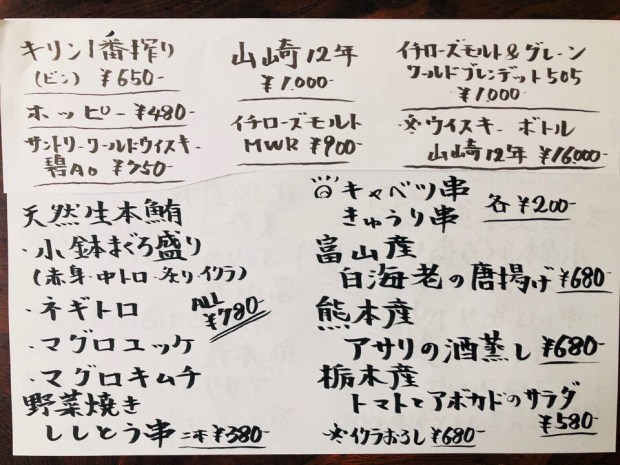 キリン1番搾り
(ビン) ¥650-
ホッピー ¥480-
サントリーワールドウイスキー
碧Ao ¥750-
山崎12年
¥1.000-
イチローズモルト
MWR ¥900-
イチローズモルト&グレーン
ワールドブレンデット505
¥1.000-
※ウイスキー ボトル
山崎12年 ¥16000-
天然生本鮪
・小鉢まぐろ盛り
(赤身・中トロ・炙り・イクラ)
・ネギトロ
・マグロユッケ
・マグロキムチ
ALL
¥780-
野菜焼き
ししとう串 二本 ¥380-
キャベツ串
きゅうり串
各 ¥200-
富山産
白海老の唐揚げ ¥680-
熊本産
アサリの酒蒸し ¥680-
栃木産
トマトとアボカドのサラダ
¥580-
※イクラおろし ¥680-